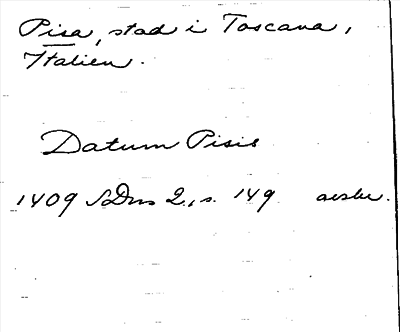 Pisa, stad i Toscana,
Italien.
Datum Pisis
1409 SDns 2, s. 149 avskr.